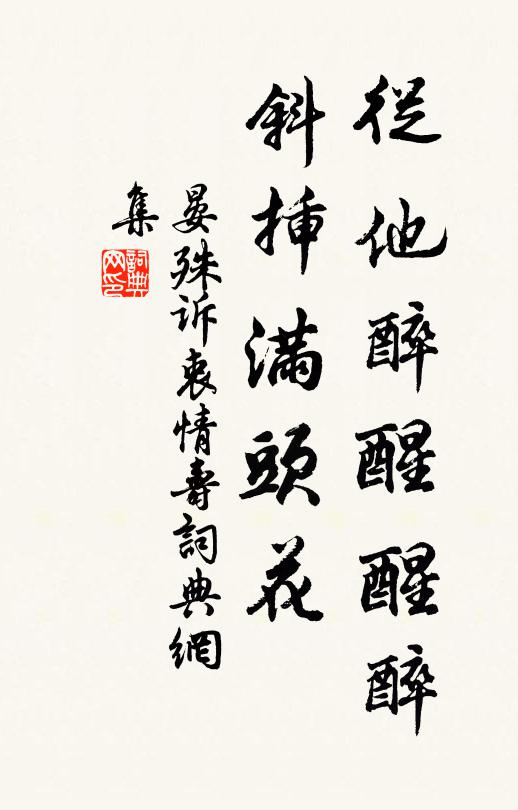 從他醉醒醒醉
斜揷滿頭花
晏殊訴衷情壽詞典網
集
詞典
网印